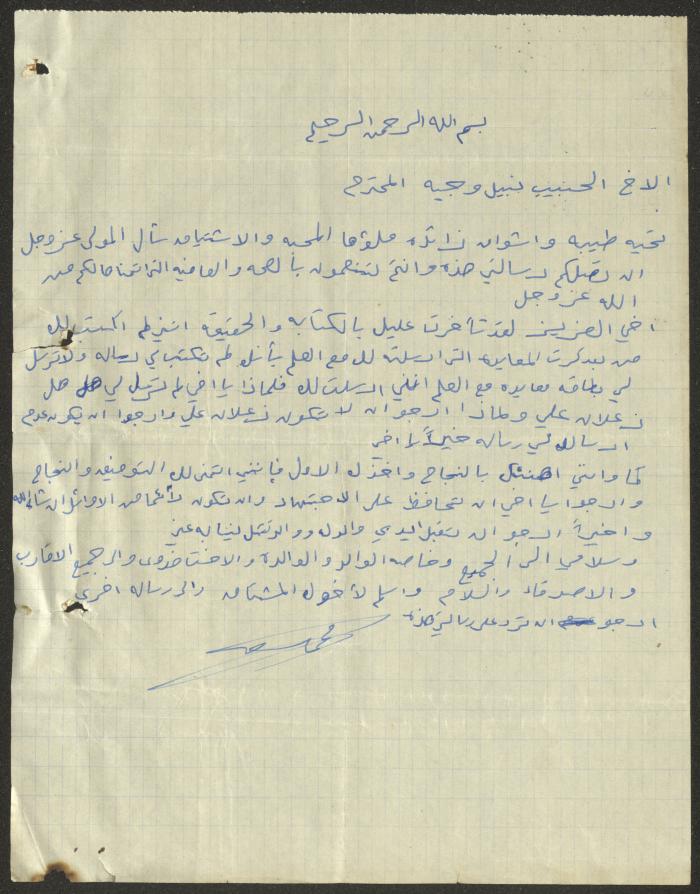 بسم الله الرحمن الرحيم
الاخ الحبيب نبيل وجيه المحترم
تحيه طيبه واشواق زائده ملؤها المحبه والاشتياق سأل المولى عز وجل
ان تصلكم رسالتي هذه وانتم تتنعمون بالصحه والعافيه التي اتمناها لكم من
الله عز وجل
اخي العزيز لقد تأخرت عليك بالكتابه والحقيقه انني لم اكتب لك
من بعد كرت المعايده التي ارسلته لك مع العلم بأنك لم تكتب لي رساله ولا ترسل
لي بطاقه معايده مع العلم انني ارسلت لك فلماذا يا اخي لم ترسل لي هل
زعلان علي ولماذا ارجو ان لا تكون زعلان علي وارجوا ان يكون عدم
ارسالك لي رساله خيراً يا اخي
كما وانني اهنئك بالنجاح واخذك الاول فإنني اتمنى لك التوفيق والنجاح
وارجو يا اخي ان تحافظ على الاجتهاد وان تكون دائما من الاوائل ان شاء الله
واخيراً ارجو ان تقبل ايدي والدك ووالدتك نيابه عني
وسلامي الى الجميع وخاصه الوالد والوالدة والاخت فدوى والى جميع الاقارب
والاصدقاء والسلام واسلم لأخوك المشتاق والى رساله اخرى
ارجو ان ترد على رسالتي هذه
محمد